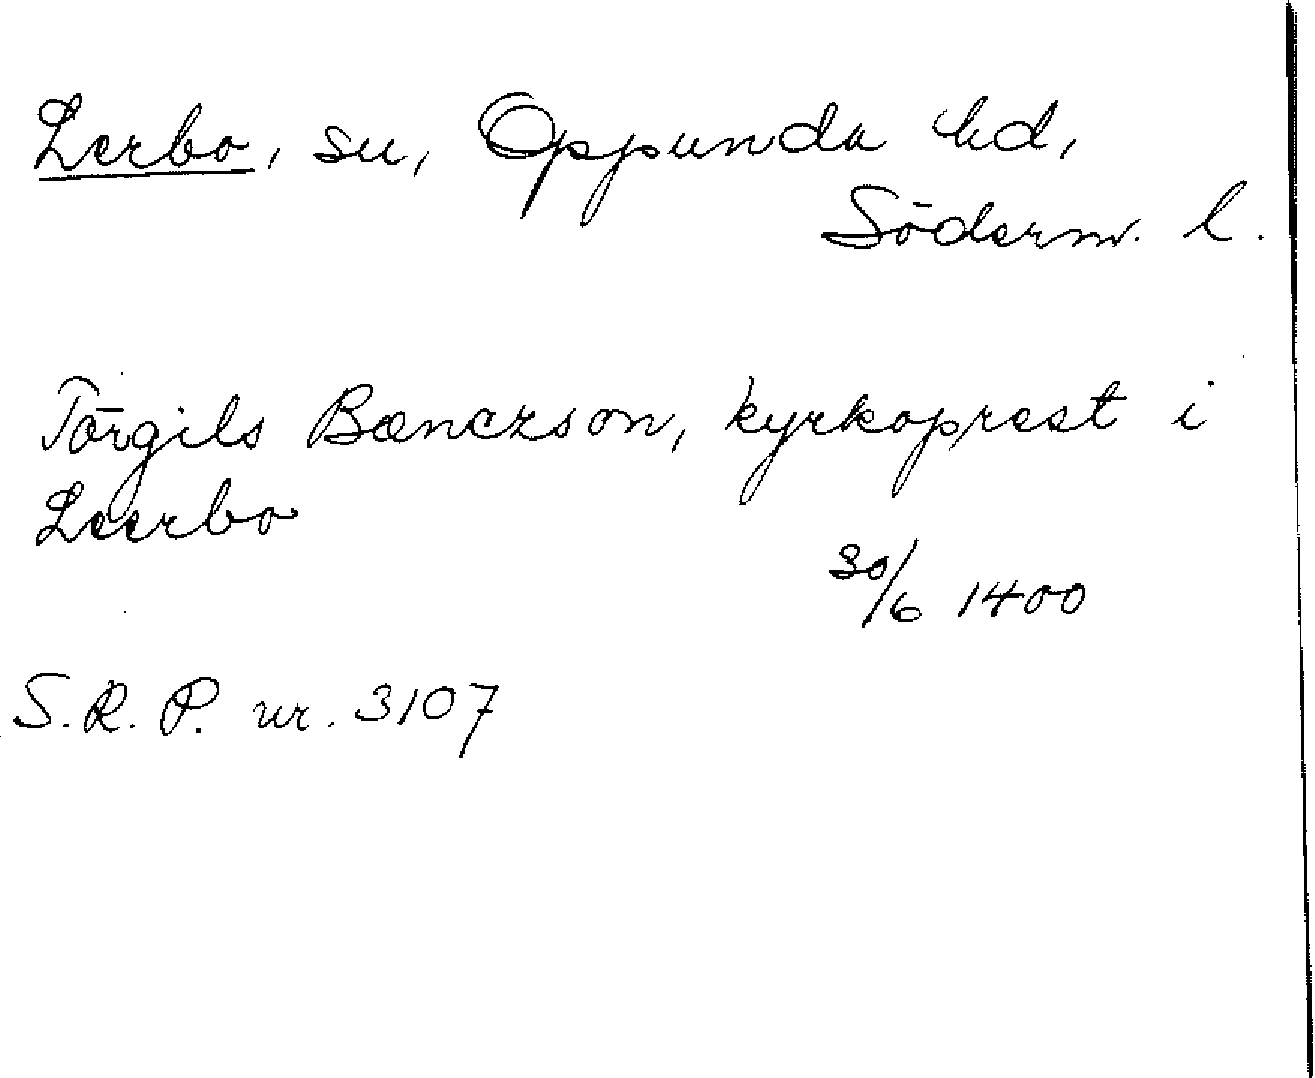 Lerbo, sn, Oppunda hd,
Söderm. l.
Törgils Bænczson, kyrkoprest i
Leerbo
30/6 1400
S.R.P. nr. 3107